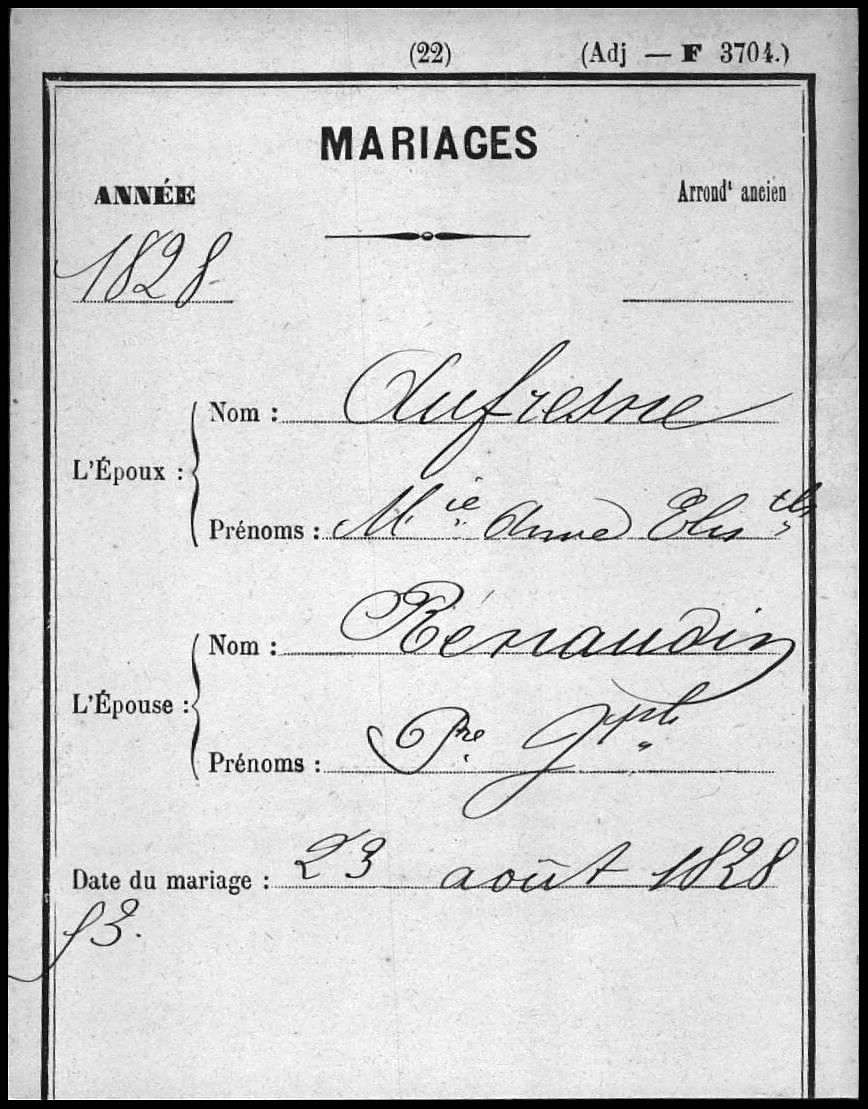 (22) (Adj — F 3704.)
MARIAGES
ANNÉE Arrondt ancien
1828
L'Époux :
Nom : Dufresne
Prénoms : Mie Anne Elisth
L'Épouse :
Nom : Rénaudin
Prénoms : Pre Jph
Date du mariage : 23 août 1828